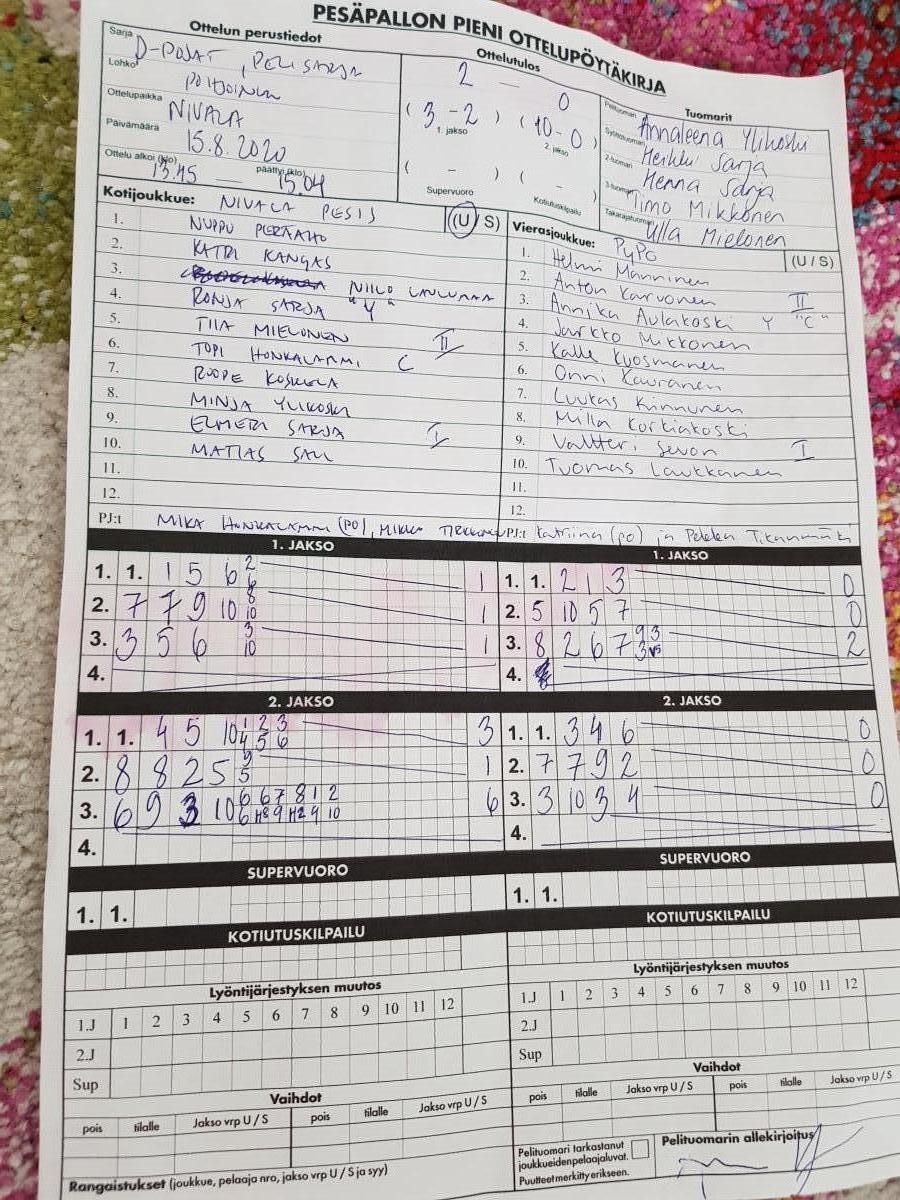 PESÄPALLON PIENI OTTELUPÖYTÄKIRJA
Ottelun perustiedot
Sarja D-POJAT, PELISARJA
Lohko POHJOINEN
Ottelupaikka NIVALA
Päivämäärä 15.8.2020
Ottelu alkoi (klo) 13.45 — päättyi (klo) 15.04
Ottelutulos
2 — 0
(3 - 2) (10 - 0)
1. jakso 2. jakso
( - ) ( - )
Supervuoro Kotiutuskilpailu
Tuomarit
Pelituomari Annaleena Ylikoski
Syöttötuomari Heikki Sarja
2-tuomari Henna Sarja
3-tuomari Timo Mikkonen
Takarajatuomari Ulla Mielonen
Kotijoukkue: NIVALA PESIS (U / S)
1. NUPPU PERÄAHO
2. KATRI KANGAS
3. NIILO
4. RONJA SARJA "Y"
5. TIIA MIELONEN II
6. TOPI HONKALAMMI C
7. ROOPE KOSKELA
8. MINJA YLIKOSKI
9. ELMERI SARJA I
10. MATIAS
11.
12.
PJ:t MIKA HONKALAMMI (PO), MIKKO
Vierasjoukkue: PyPo (U / S)
1. Helmi Manninen
2. Anton Karvonen II
3. Annika Aulakoski Y "C"
4. Jarkko Mikkonen
5. Kalle Kuosmanen
6. Onni Kauranen
7. Luukas Kinnunen
8. Milla Korkiakoski
9. Valtteri Sevon I
10. Tuomas Laukkanen
11.
12.
PJ:t Katriina (po) ja Pekka Tikanmäki
1. JAKSO
1. 1. 1 5 6 2 6 1
2. 7 7 9 10 8 10 1
3. 3 5 6 3 10 1
4.
1. JAKSO
1. 1. 2 1 3 0
2. 5 10 5 7 0
3. 8 2 6 7 9 3 3 2
4.
2. JAKSO
1. 1. 4 5 10 1 2 3 4 5 6 3
2. 8 8 2 5 9 5 1
3. 6 9 3 10 6 6 7 8 1 2 6 H8 9 H2 9 10 6
4.
2. JAKSO
1. 1. 3 4 6 0
2. 7 7 9 2 0
3. 3 10 3 4 0
4.
SUPERVUORO
1. 1.
SUPERVUORO
1. 1.
KOTIUTUSKILPAILU
KOTIUTUSKILPAILU
Lyöntijärjestyksen muutos
1.J 1 2 3 4 5 6 7 8 9 10 11 12
2.J
Sup
Lyöntijärjestyksen muutos
1.J 1 2 3 4 5 6 7 8 9 10 11 12
2.J
Sup
Vaihdot
pois tilalle Jakso vrp U / S pois tilalle Jakso vrp U / S
Vaihdot
pois tilalle Jakso vrp U / S pois tilalle Jakso vrp U / S
Rangaistukset (joukkue, pelaaja nro, jakso vrp U / S ja syy)
Pelituomari tarkastanut
joukkueiden pelaajaluvat.
Puutteet merkitty erikseen.
Pelituomarin allekirjoitus